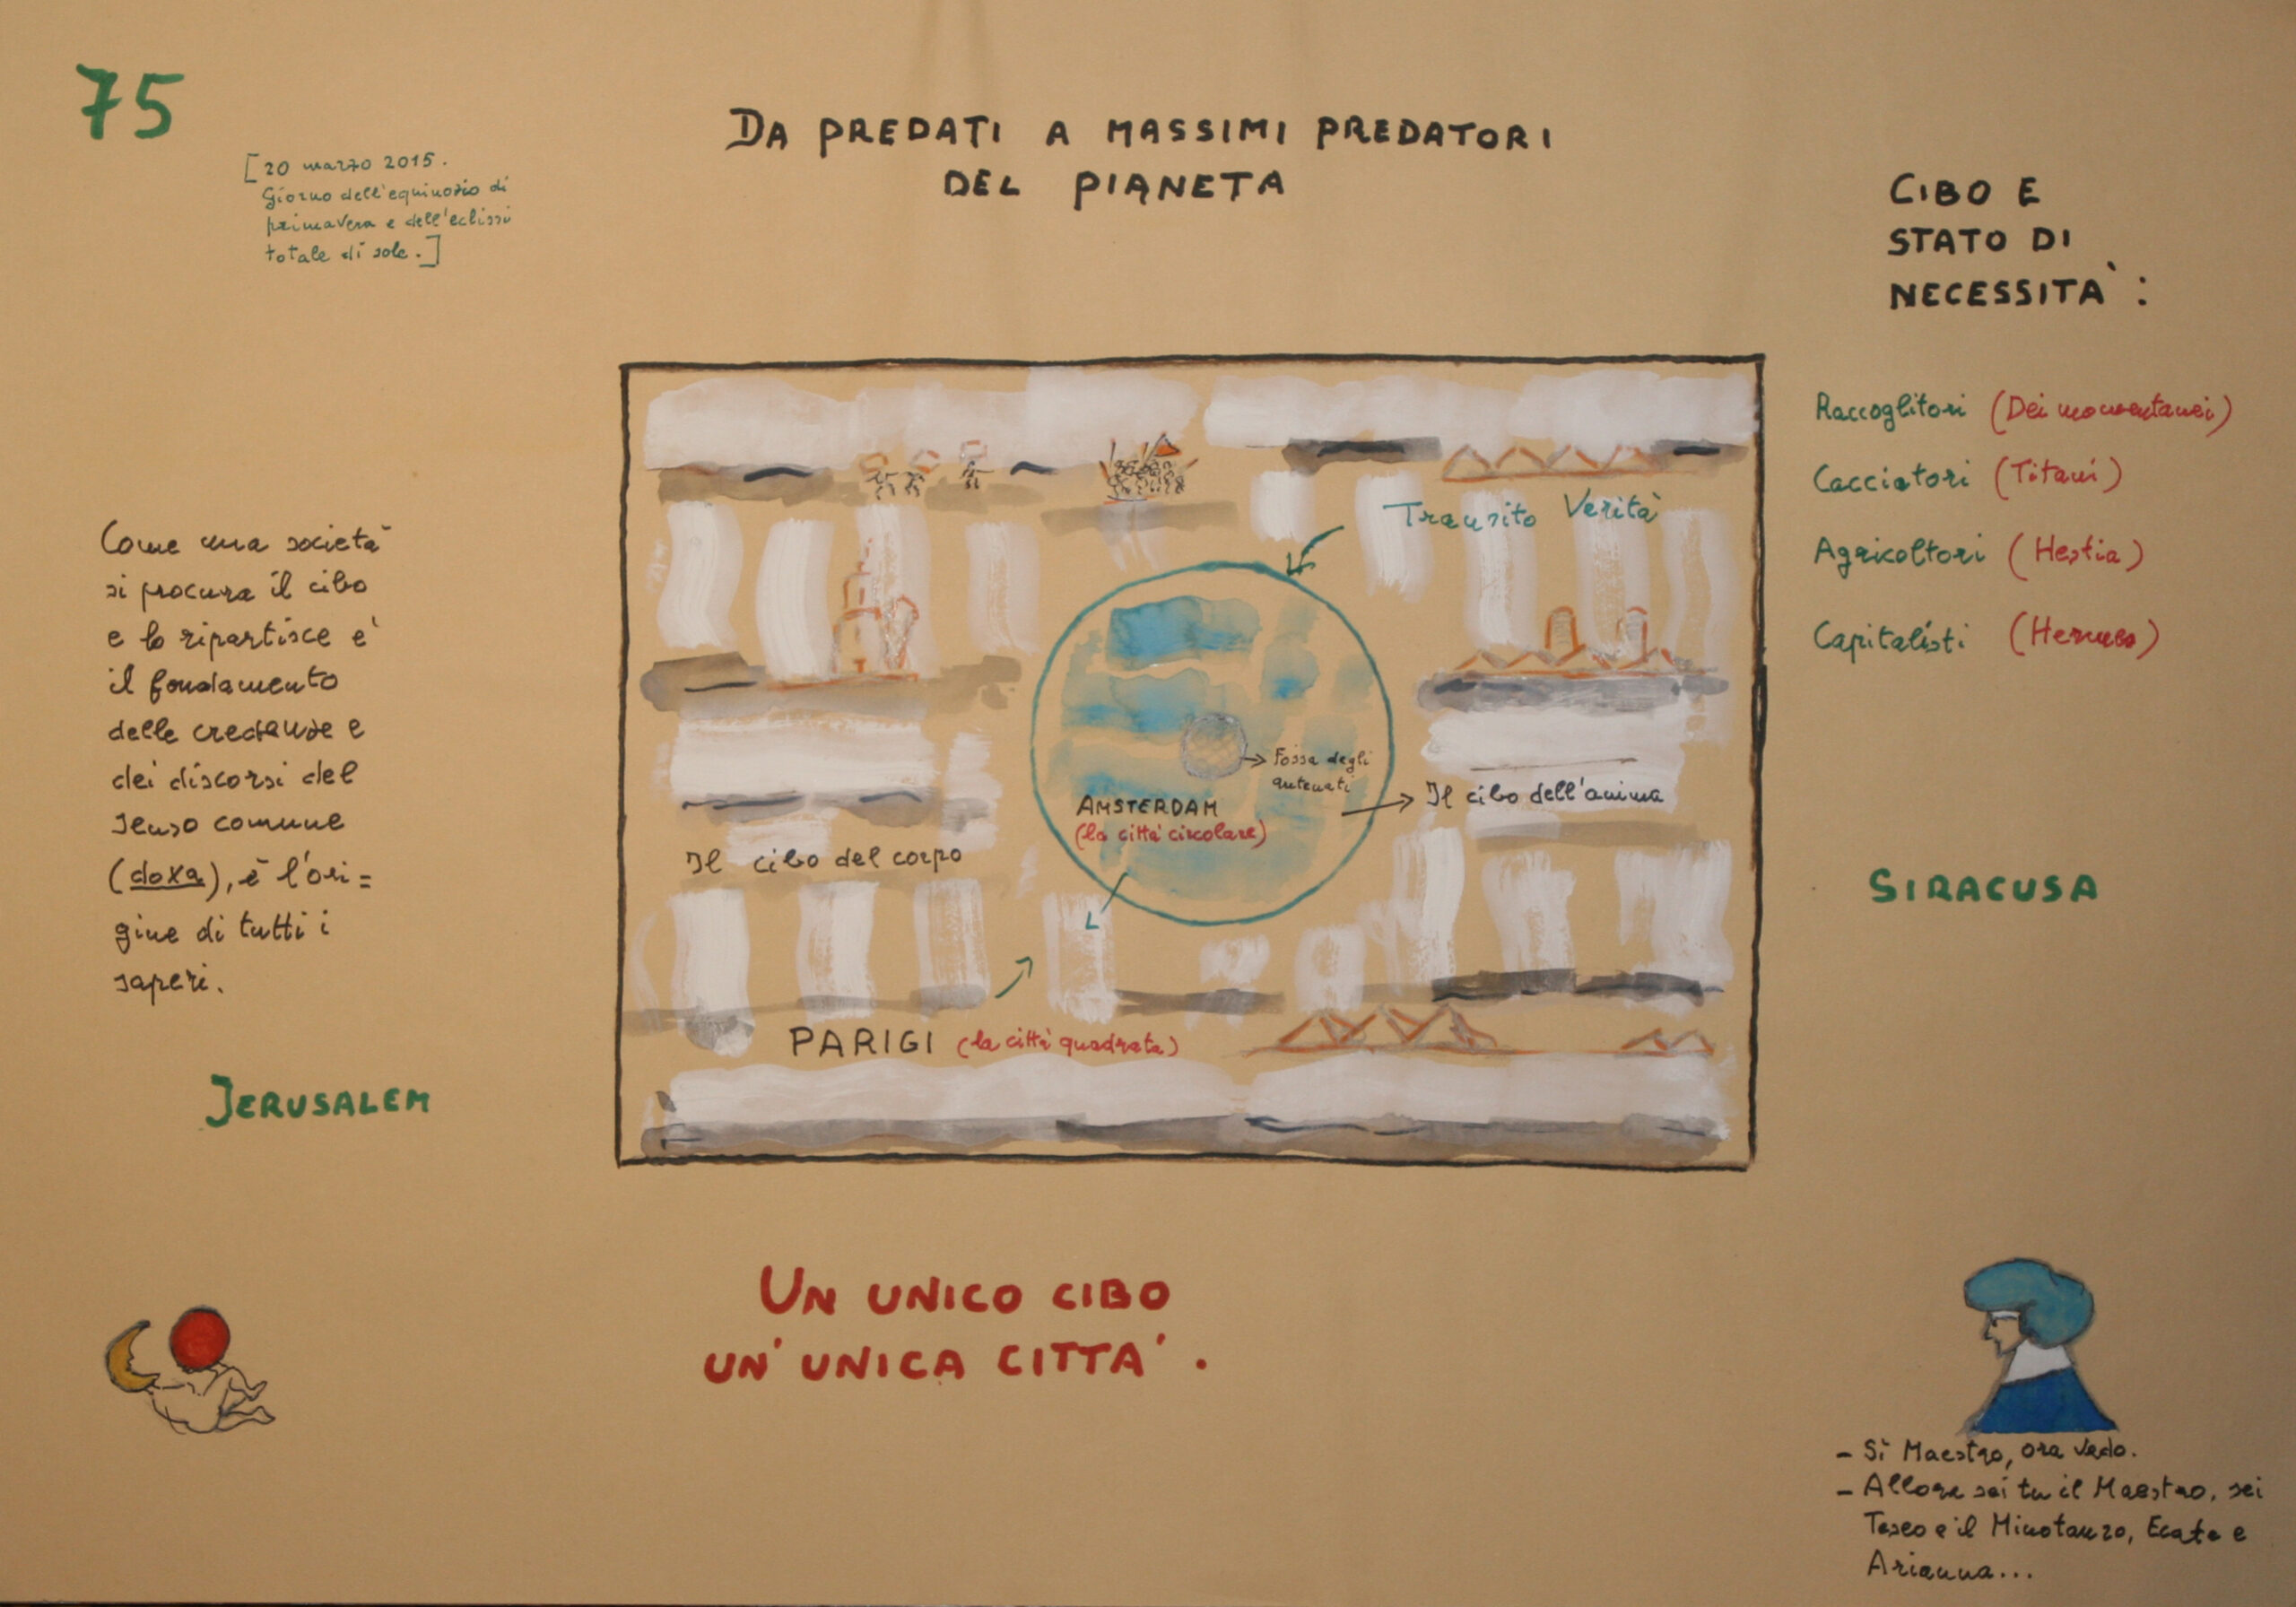 75
[20 marzo 2015.
Giorno dell'equinozio di
primavera e dell'eclissi
totale di sole.]
DA PREDATI A MASSIMI PREDATORI
DEL PIANETA
CIBO E
STATO DI
NECESSITA':
Raccoglitori (Dei momentanei)
Cacciatori (Titani)
Agricoltori (Hestia)
Capitalisti (Hermes)
Come una società
si procura il cibo
e lo ripartisce e'
il fondamento
delle credenze e
dei discorsi del
senso comune
(doxa), è l'ori=
gine di tutti i
saperi.
Transito Verità
Fossa degli
antenati
AMSTERDAM
(la città circolare)
Il cibo dell'anima
Il cibo del corpo
PARIGI (la città quadrata)
SIRACUSA
JERUSALEM
UN UNICO CIBO
UN' UNICA CITTA'.
- Sì Maestro, ora vedo.
- Allora sei tu il Maestro, sei
Teseo e il Minotauro, Ecate e
Arianna...